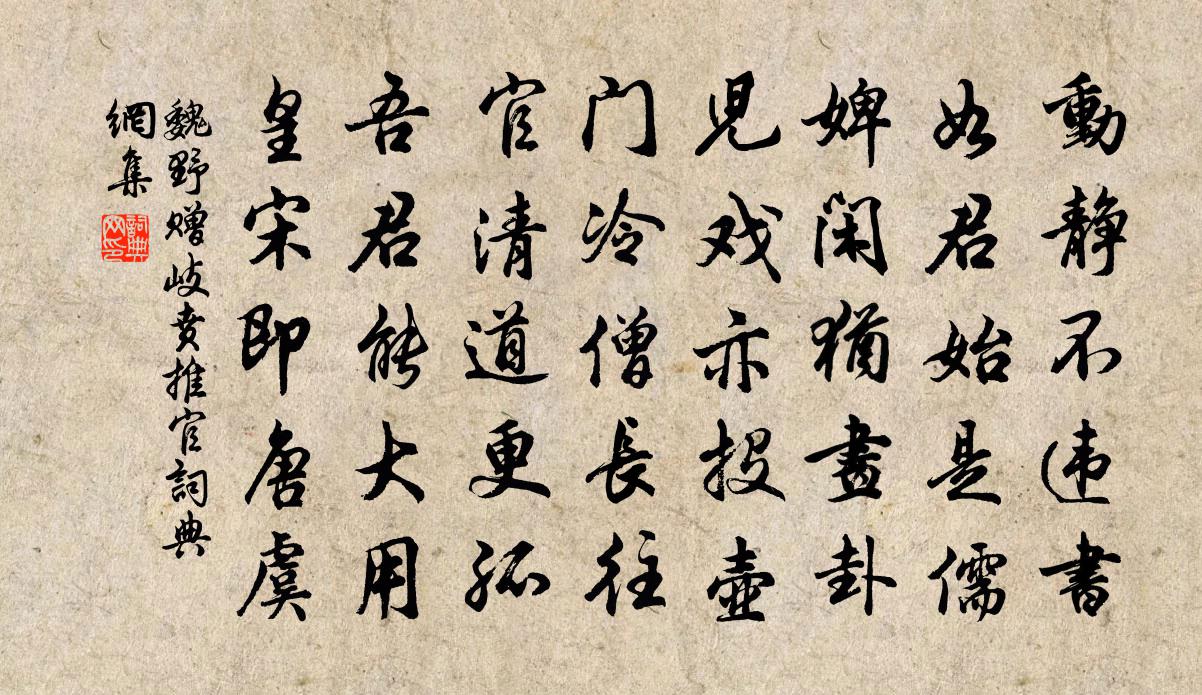 動靜不违書
如君始是儒
婢閑猶畫卦
児戏亦投壺
门冷僧長往
官清道更孤
吾君能大用
皇宋即唐虞
魏野赠歧贲推官詞典
網集
詞典网印